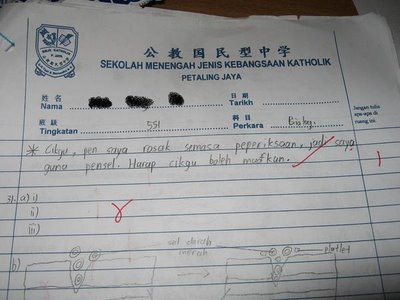 公教国民型中学
SEKOLAH MENENGAH JENIS KEBANGSAAN KATHOLIK
PETALING JAYA
姓名
Nama
日期
Tarikh
班级
Tingkatan 5S1
科目
Perkara Biology
Jangan tulis
apa-apa di
ruang ini.
* Cikgu, pen saya rosak semasa peperiksaan, jadi saya
guna pensel. Harap cikgu boleh maafkan.
a) i)
ii)
iii)
b)
sel darah
merah
platlet